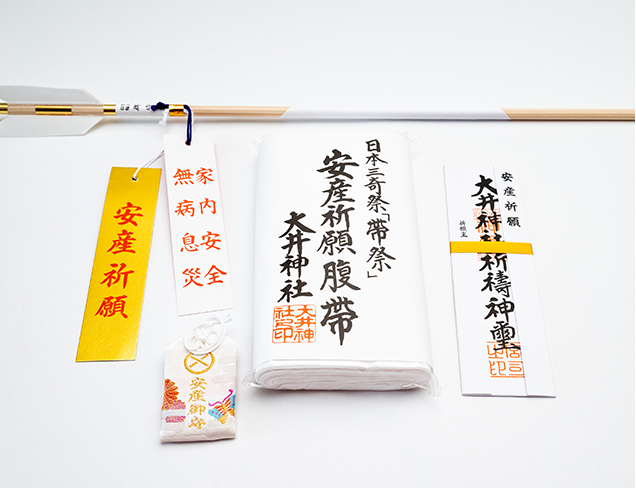 安産祈願
家内安全
無病息災
安産御守
日本三奇祭「帶祭」
安産祈願腹帶
大井神社
大井神
社之印
安産祈願
大井神社祈禱神璽
祈願主
宮司
之印